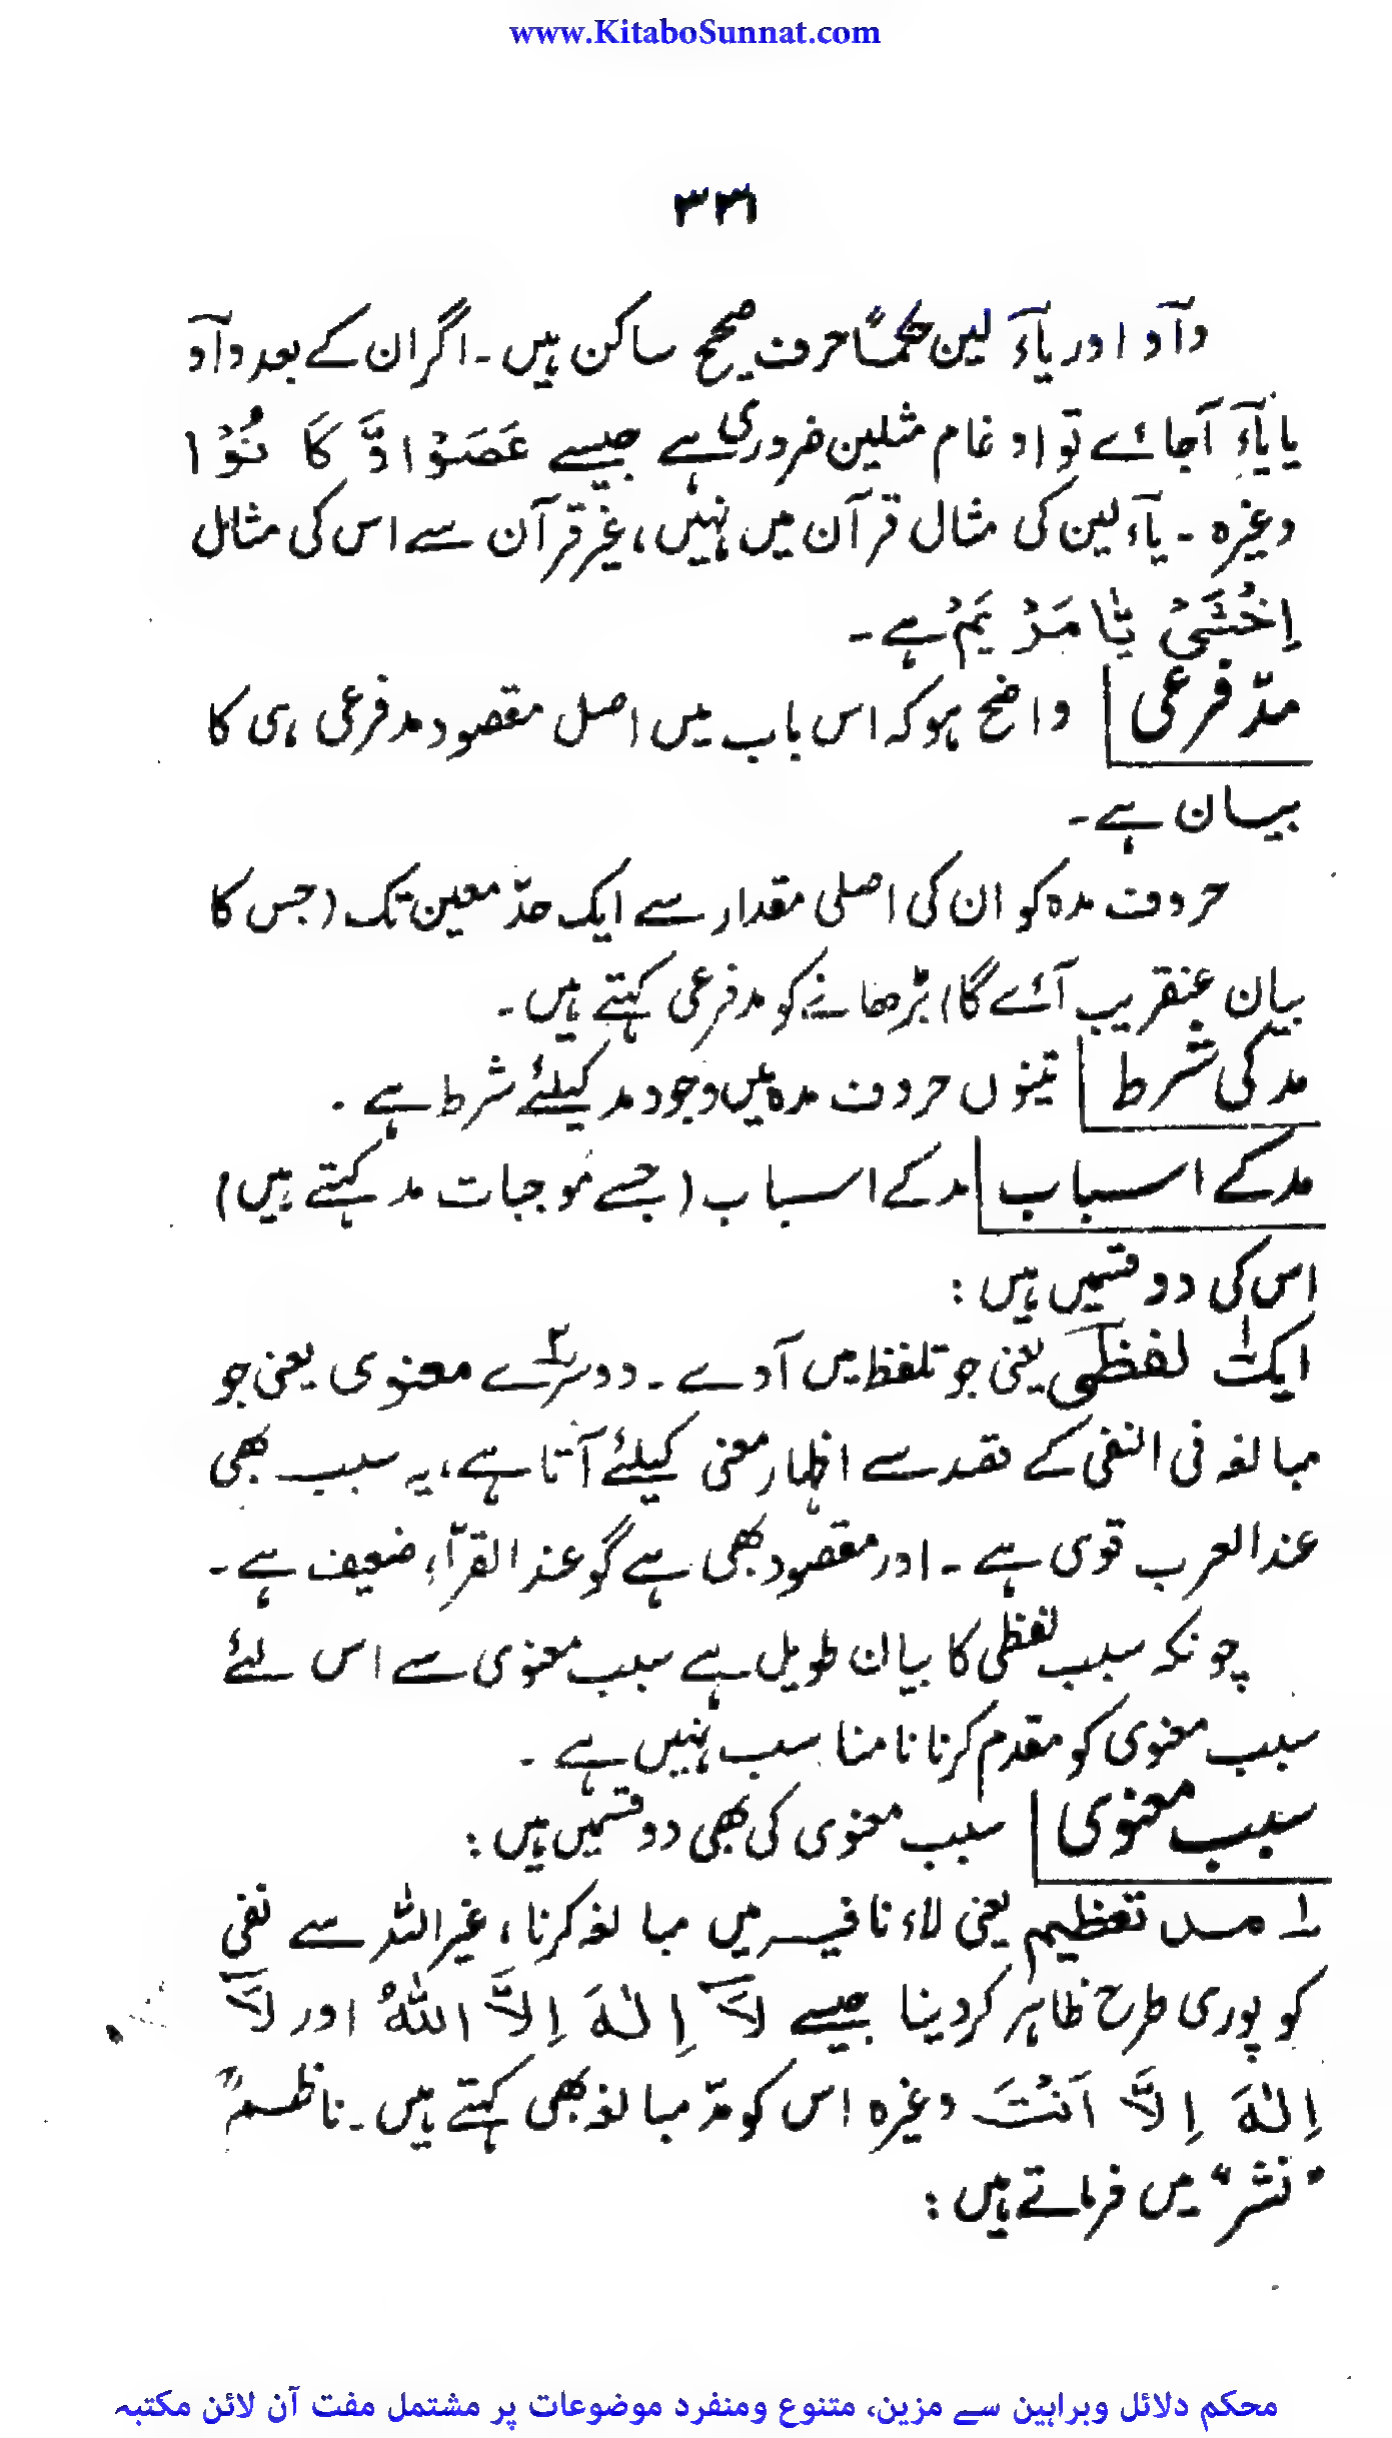 www.KitaboSunnat.com
۳۳۱
وآو اور یآء لین حکماً حرف صحیح ساکن ہیں۔ اگر ان کے بعد وآو
یا یآء آجائے تو ادغام مثلین ضروری ہے جیسے عَصَوْا وَّ کَا نُوْا
وغیرہ ۔ یآء لین کی مثال قرآن میں نہیں، غیر قرآن سے اس کی مثال
اِخْشَیْ یَّا مَرْ یَمُ ہے۔
مدّ فرعی واضح ہوکہ اس باب میں اصل مقصود مد فرعی ہی کا
بیان ہے۔
حروف مدہ کو ان کی اصلی مقدار سے ایک حدّ معین تک (جس کا
بیان عنقریب آئے گا) بڑھانے کو مد فرعی کہتے ہیں۔
مد کی شرط تینوں حروف مدہ میں وجود مد کیلئے شرط ہے ۔
مد کے اسباب مد کے اسباب (جسے موجبات مد کہتے ہیں)
اس کی دو قسمیں ہیں :
ایک۱ لفظی یعنی جو تلفظ میں آوے ۔ دوسرے۲ معنوی یعنی جو
مبالغہ فی النفی کے قصد سے اظہار معنی کیلئے آتا ہے، یہ سبب بھی
عند العرب قوی ہے ۔ اور مقصود بھی ہے گو عند القرّآء ضعیف ہے ۔
چونکہ سبب لفظی کا بیان طویل ہے سبب معنوی سے اس لئے
سبب معنوی کو مقدم کرنا نامناسب نہیں ہے ۔
سبب معنوی سبب معنوی کی بھی دو قسمیں ہیں :
۱ مد تعظیم یعنی لاء نافیہ میں مبالغہ کرنا ، غیر اللہ سے نفی
کو پوری طرح ظاہر کردینا جیسے لَآ اِلٰهَ اِلَّا اللّٰهُ اور لَآ
اِلٰهَ اِلَّا اَنْتَ وغیرہ اس کو مدّ مبالغہ بھی کہتے ہیں۔ ناظمؒ
”نشر“ میں فرماتے ہیں :
محکم دلائل وبراہین سے مزین، متنوع ومنفرد موضوعات پر مشتمل مفت آن لائن مکتبہ